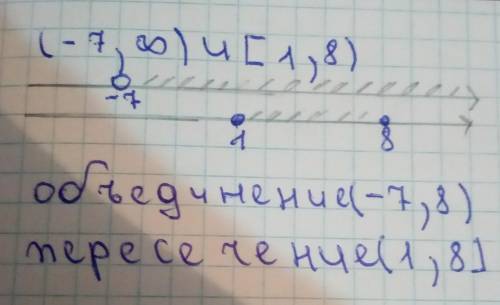 (-7, ∞) и [1, 8)
-7
1 8
объединение(-7, 8)
пересечение(1, 8]